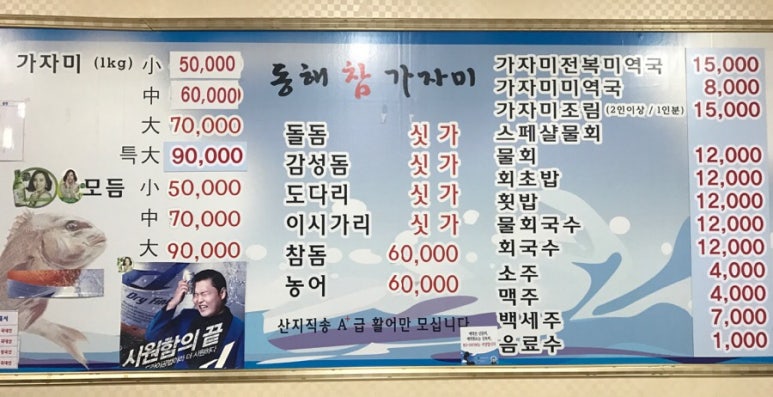 가자미 (1kg) 小 50,000
中 60,000
大 70,000
특大 90,000
모듬 小 50,000
中 70,000
大 90,000
시원함의 끝
동해 참 가자미
돌돔 싯가
감성돔 싯가
도다리 싯가
이시가리 싯가
참돔 60,000
농어 60,000
산지직송 A+급 활어만 모십니다
가자미전복미역국 15,000
가자미미역국 8,000
가자미조림 (2인이상 / 1인분) 15,000
스페샬물회
물회 12,000
회초밥 12,000
횟밥 12,000
물회국수 12,000
회국수 12,000
소주 4,000
맥주 4,000
백세주 7,000
음료수 1,000